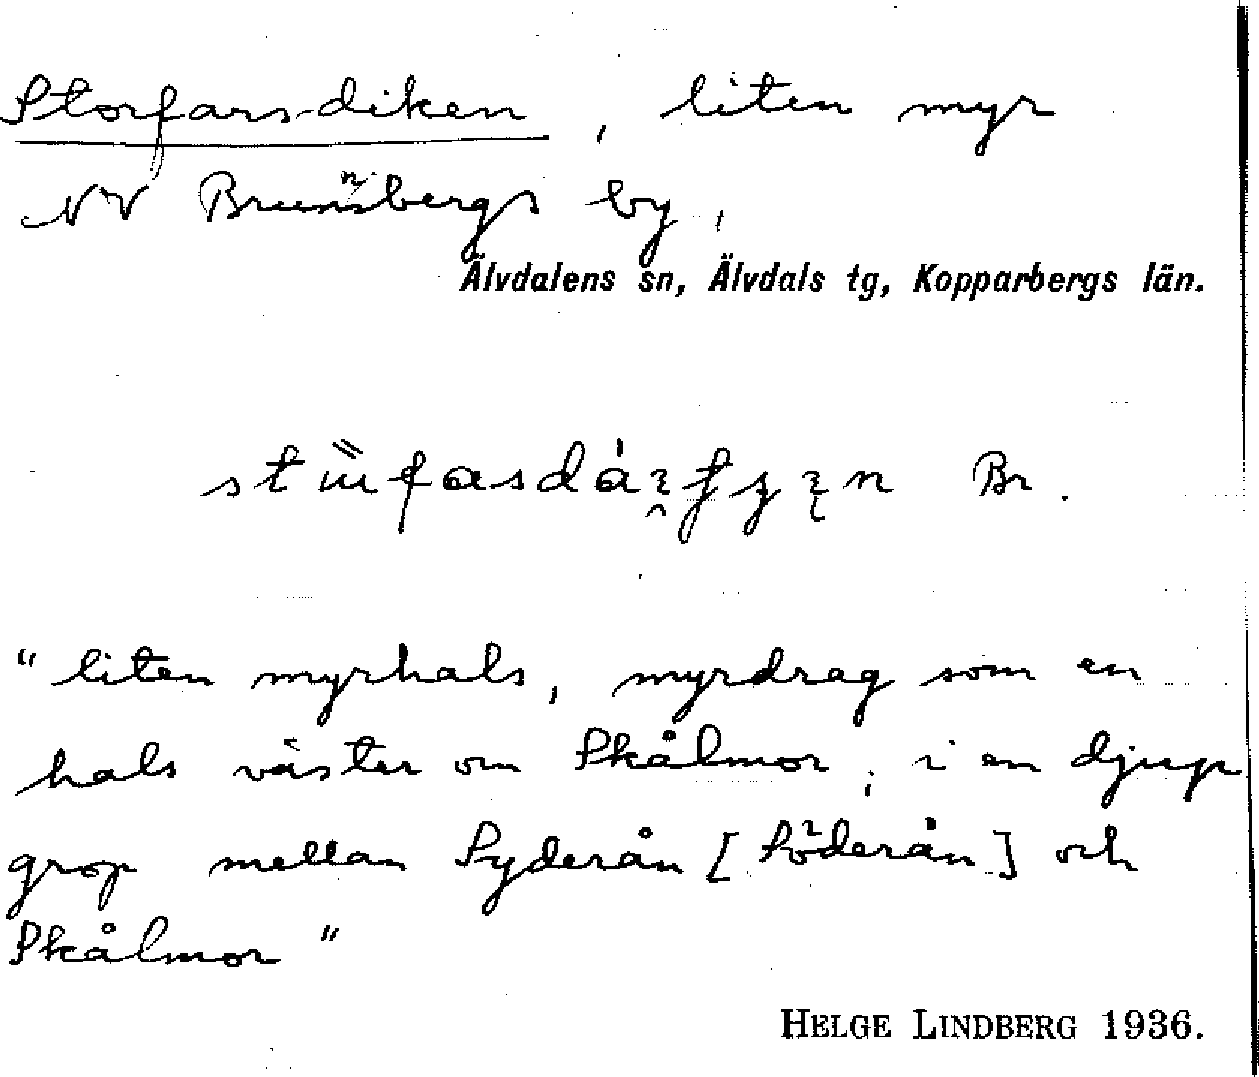 Storfars-diken, liten myr
NV Brunnsbergs by,
Älvdalens sn, Älvdals tg, Kopparbergs län.
Br.
"liten myrhals, myrdrag som en
hals väster om Skålmor, i en djup
grop mellan Syderån [Söderån] och
Skålmor"
HELGE LINDBERG 1936.